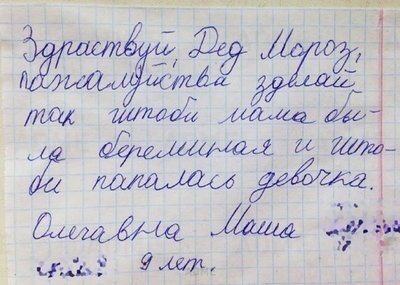 Здраствуй, Дед Мороз,
пажалуйства здылай,
так штоби мама бы-
ла береминая и што-
би папалась девочка.
Олегавна Маша
9 лет.